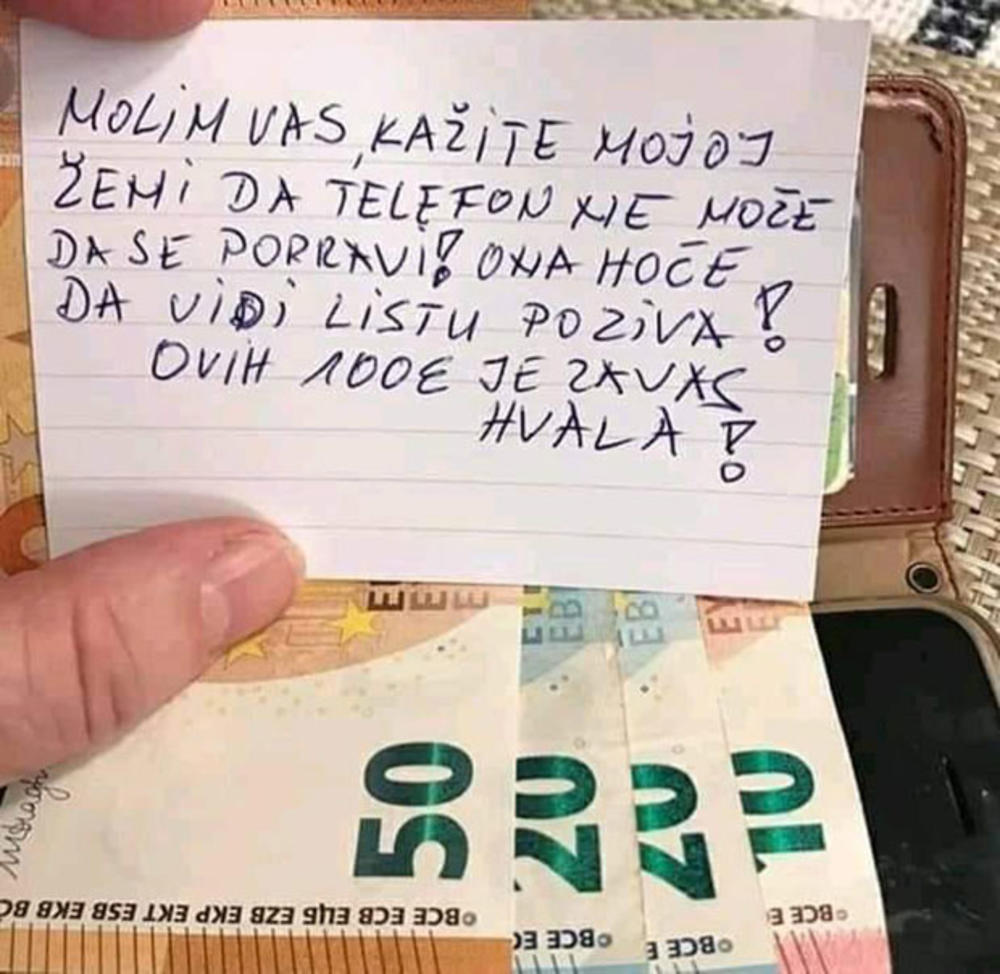 MOLIM VAS, KAŽITE MOJOJ
ŽEMI DA TELEFON NE MOŽE
DA SE POPRAVI! ONA HOĆE
DA VIDI LISTU POZIVA!
OVIH 100€ JE ZA VAS
HVALA!
50
20
20
10
©BCE ECB ЕЦБ EZB EKP EKT ESB EKB BC
©BCE EC
©BCE E
©BCE E